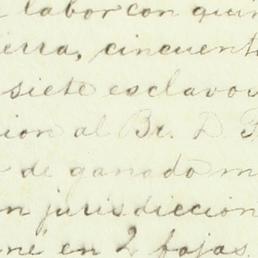 labor con quin
erra, cincuent
siete esclavo
ion al Br. D. F
de ganado m
n jurisdiccion
né en 2 fojas.